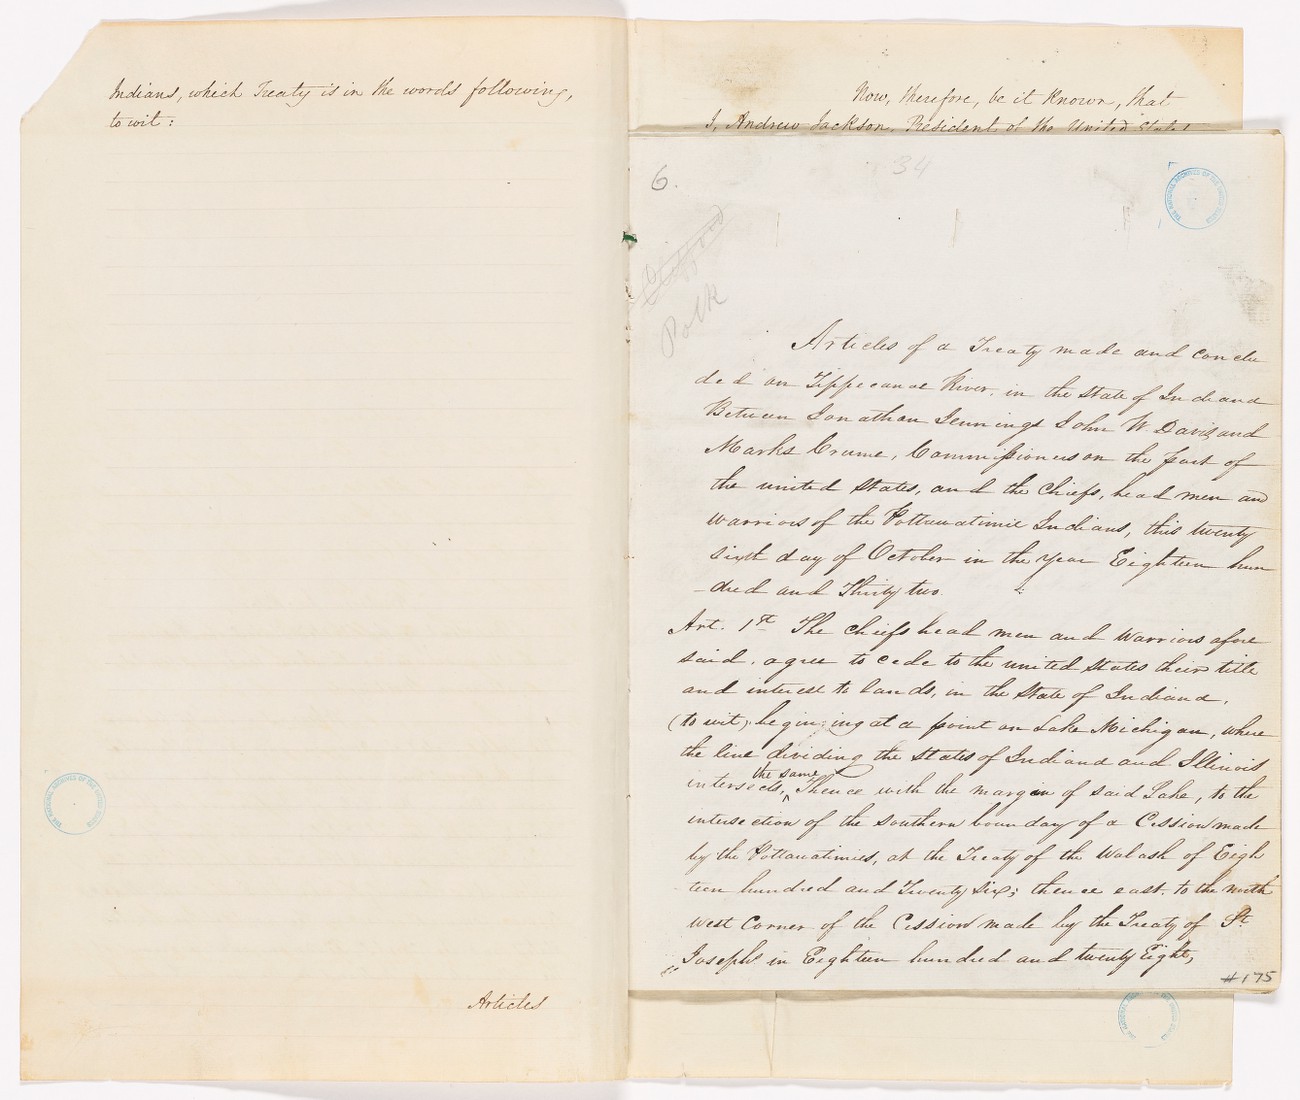 Indians, which Treaty is in the words following,
to wit:
Articles
Now, therefore, be it known, that
I, Andrew Jackson, President of the United States
6.
34
Polk
THE NATIONAL ARCHIVES OF THE UNITED STATES
Articles of a Treaty made and conclu
ded on Tippecanoe River, in the State of Indiana
Between Jonathan Jennings John W Davis and
Marks Crume, Commissioners on the part of
the united States, and the Chiefs, head men and
warriors of the Pottawatimie Indians, this twenty
sixth day of October in the year Eighteen hun
-dred and Thirty two.
Art. 1st The chiefs head men and Warriors afore
said, agree to cede to the united States their title
and interest to lands, in the State of Indiana,
(to wit,) begining at a point on Lake Michigan, where
the line dividing the States of Indiana and Illinois
intersects, ^ the same Thence with the margin of said Lake, to the
intersection of the southern boundary of a Cession made
by the Pottawatimies, at the Treaty of the Wabash of Eigh
teen hundred and Twenty Six; thence east, to the north
west Corner of the Cession made by the Treaty of St.
Joseph's in Eighteen hundred and twenty Eight,
#175